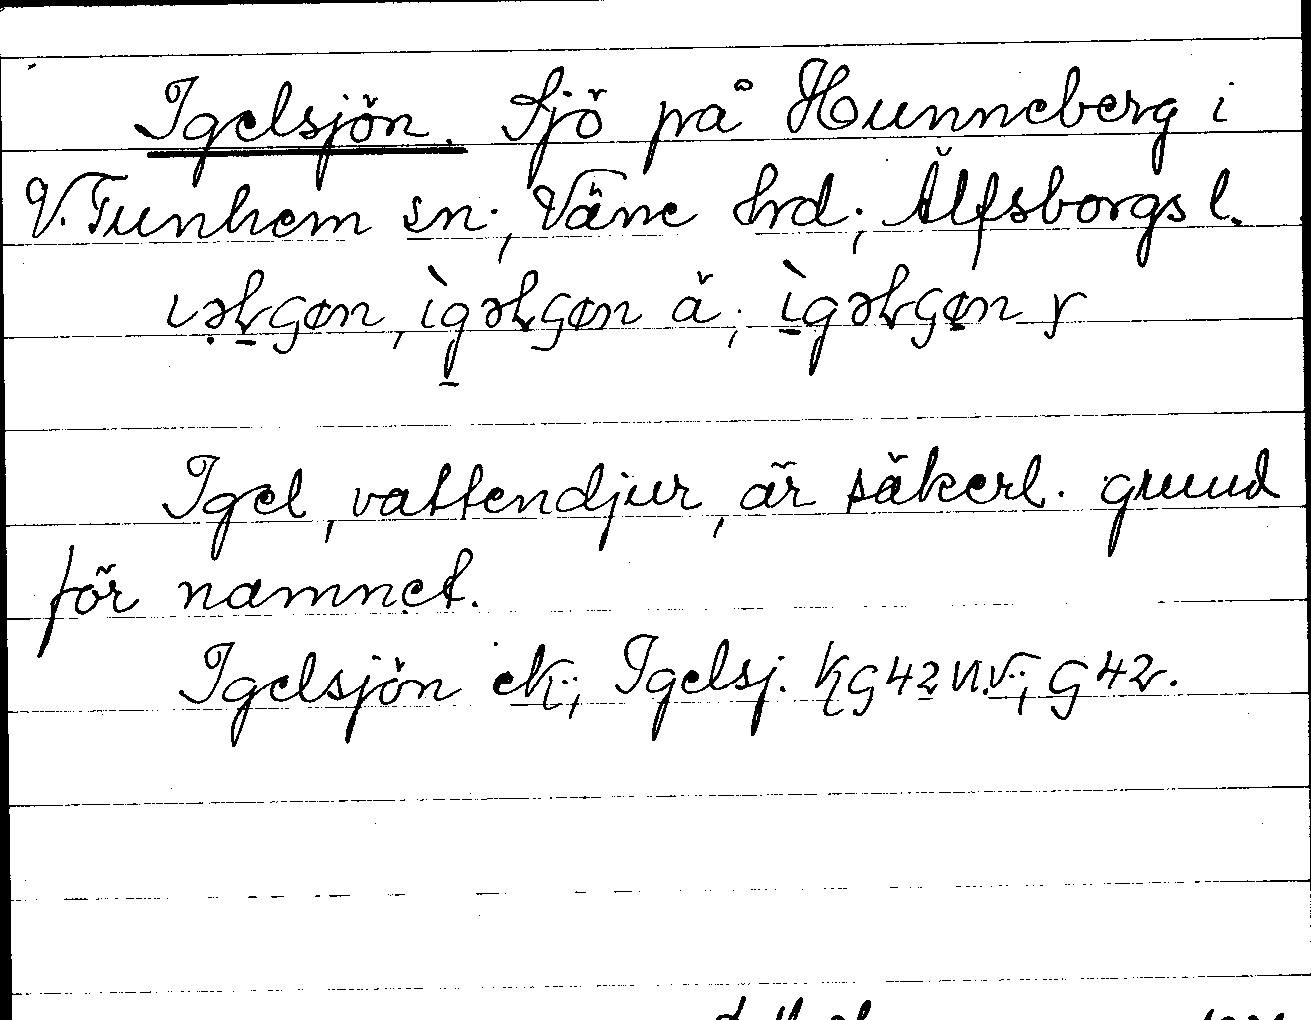 Igelsjön. Sjö på Hunneberg i
V. Tunhem sn; Väne hrd; Älfsborgs l.
ìgəɫʂøn ä; ìgəɫʂøn y
Igel, vattendjur, är säkerl. grund
för namnet.
Igelsjön ek; Igelsj. KG 42 N.V; G 42.